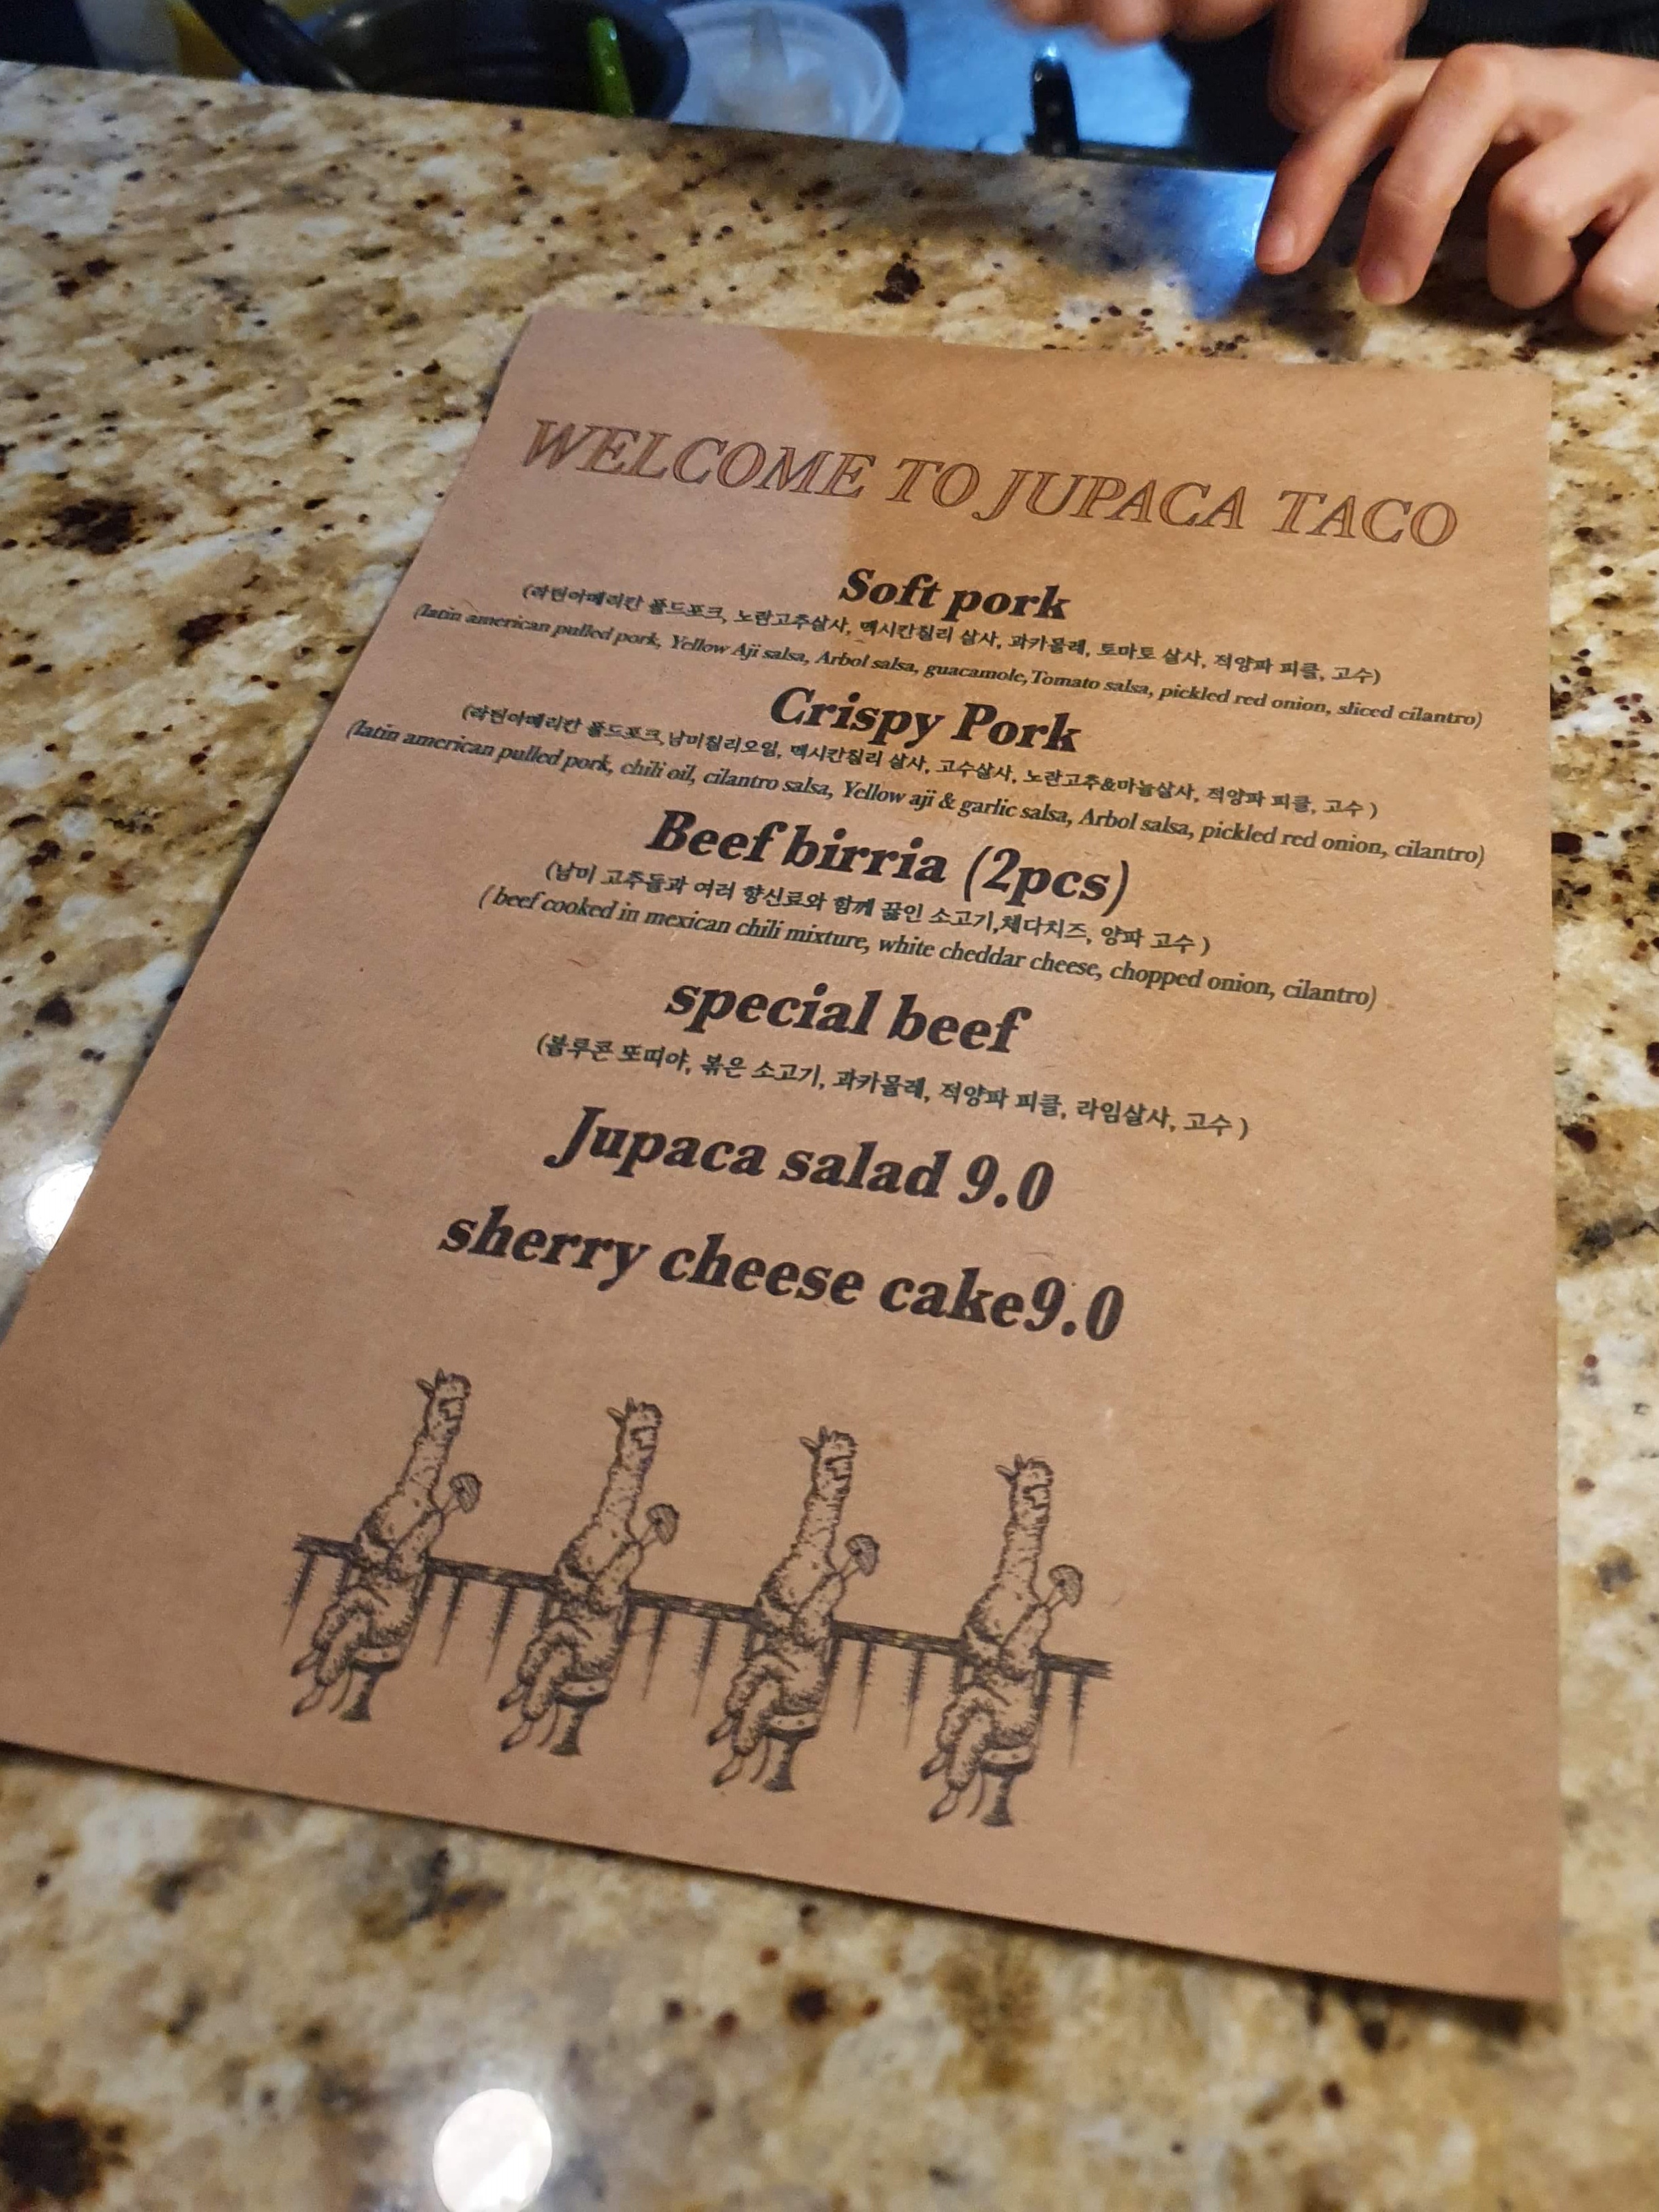 WELCOME TO JUPACA TACO
Soft pork
(라틴아메리칸 풀드포크, 노란고추살사, 멕시칸칠리 살사, 과카몰레, 토마토 살사, 적양파 피클, 고수)
(latin american pulled pork, Yellow Aji salsa, Arbol salsa, guacamole,Tomato salsa, pickled red onion, sliced cilantro)
Crispy Pork
(라틴아메리칸 풀드포크,남미칠리오일, 멕시칸칠리 살사, 고수살사, 노란고추&마늘살사, 적양파 피클, 고수 )
(latin american pulled pork, chili oil, cilantro salsa, Yellow aji & garlic salsa, Arbol salsa, pickled red onion, cilantro)
Beef birria (2pcs)
(남미 고추들과 여러 향신료와 함께 끓인 소고기,체다치즈, 양파 고수 )
( beef cooked in mexican chili mixture, white cheddar cheese, chopped onion, cilantro)
special beef
(블루콘 또띠아, 볶은 소고기, 과카몰레, 적양파 피클, 라임살사, 고수 )
Jupaca salad 9.0
sherry cheese cake9.0